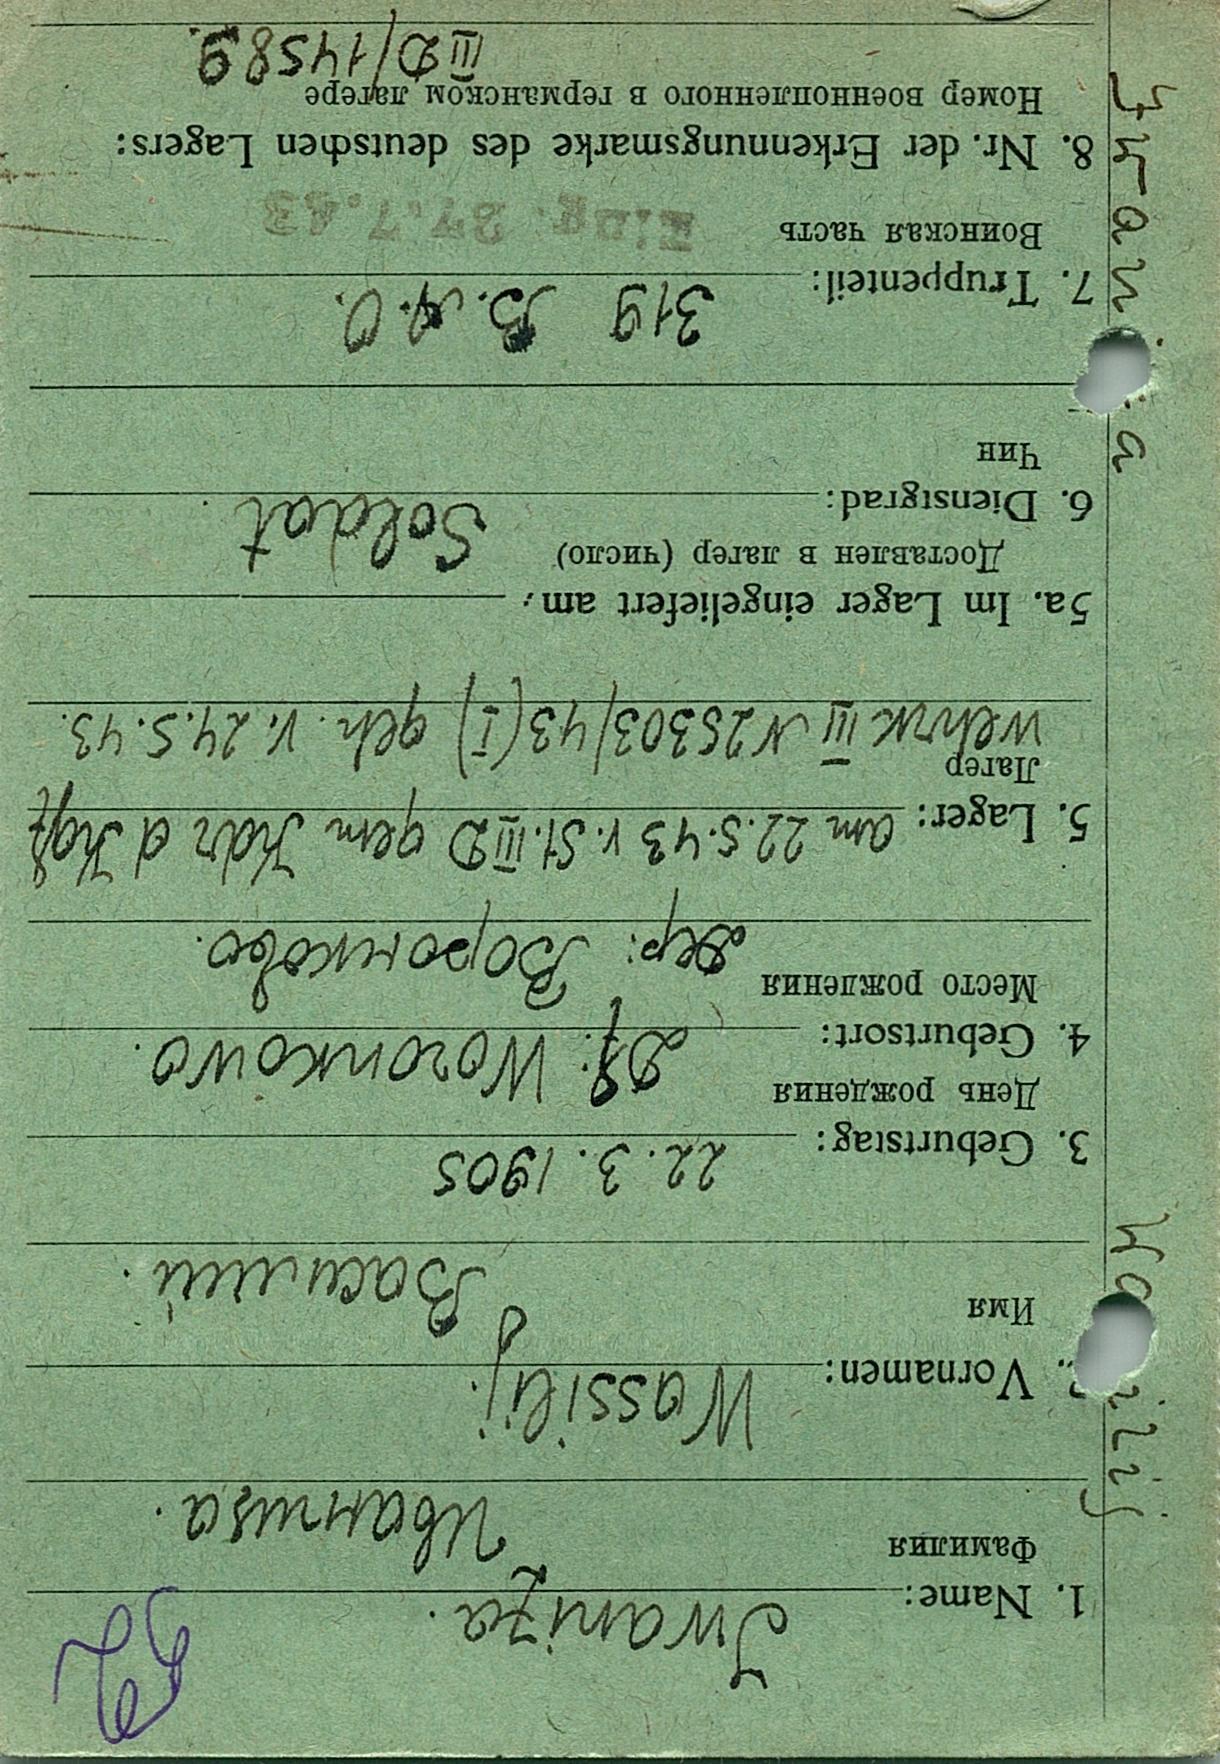 1. Name: Iwaniza.
Фамилия Иваниза.
Vornamen: Wassilij.
Имя Василий.
3. Geburtstag: 22.3.1905
День рождения
4. Geburtsort: Df: Woronkowo.
Место рождения Дер: Воронково.
5. Lager: am 22.5.43 v. St. III D gem Kdr d Kgf
Лагер
Wehrk III N 25303/43 (I) geh. v. 24.5.43.
5a. Im Lager eingeliefert am:
Доставлен в лагер (число)
6. Dienstgrad: Soldat
Чин
7. Truppenteil: 319 B.A.O.
Воинская часть Eing:
8. Nr. der Erkennungsmarke des deutschen Lagers:
Номер военнопленного в германском лагере
III D/14589